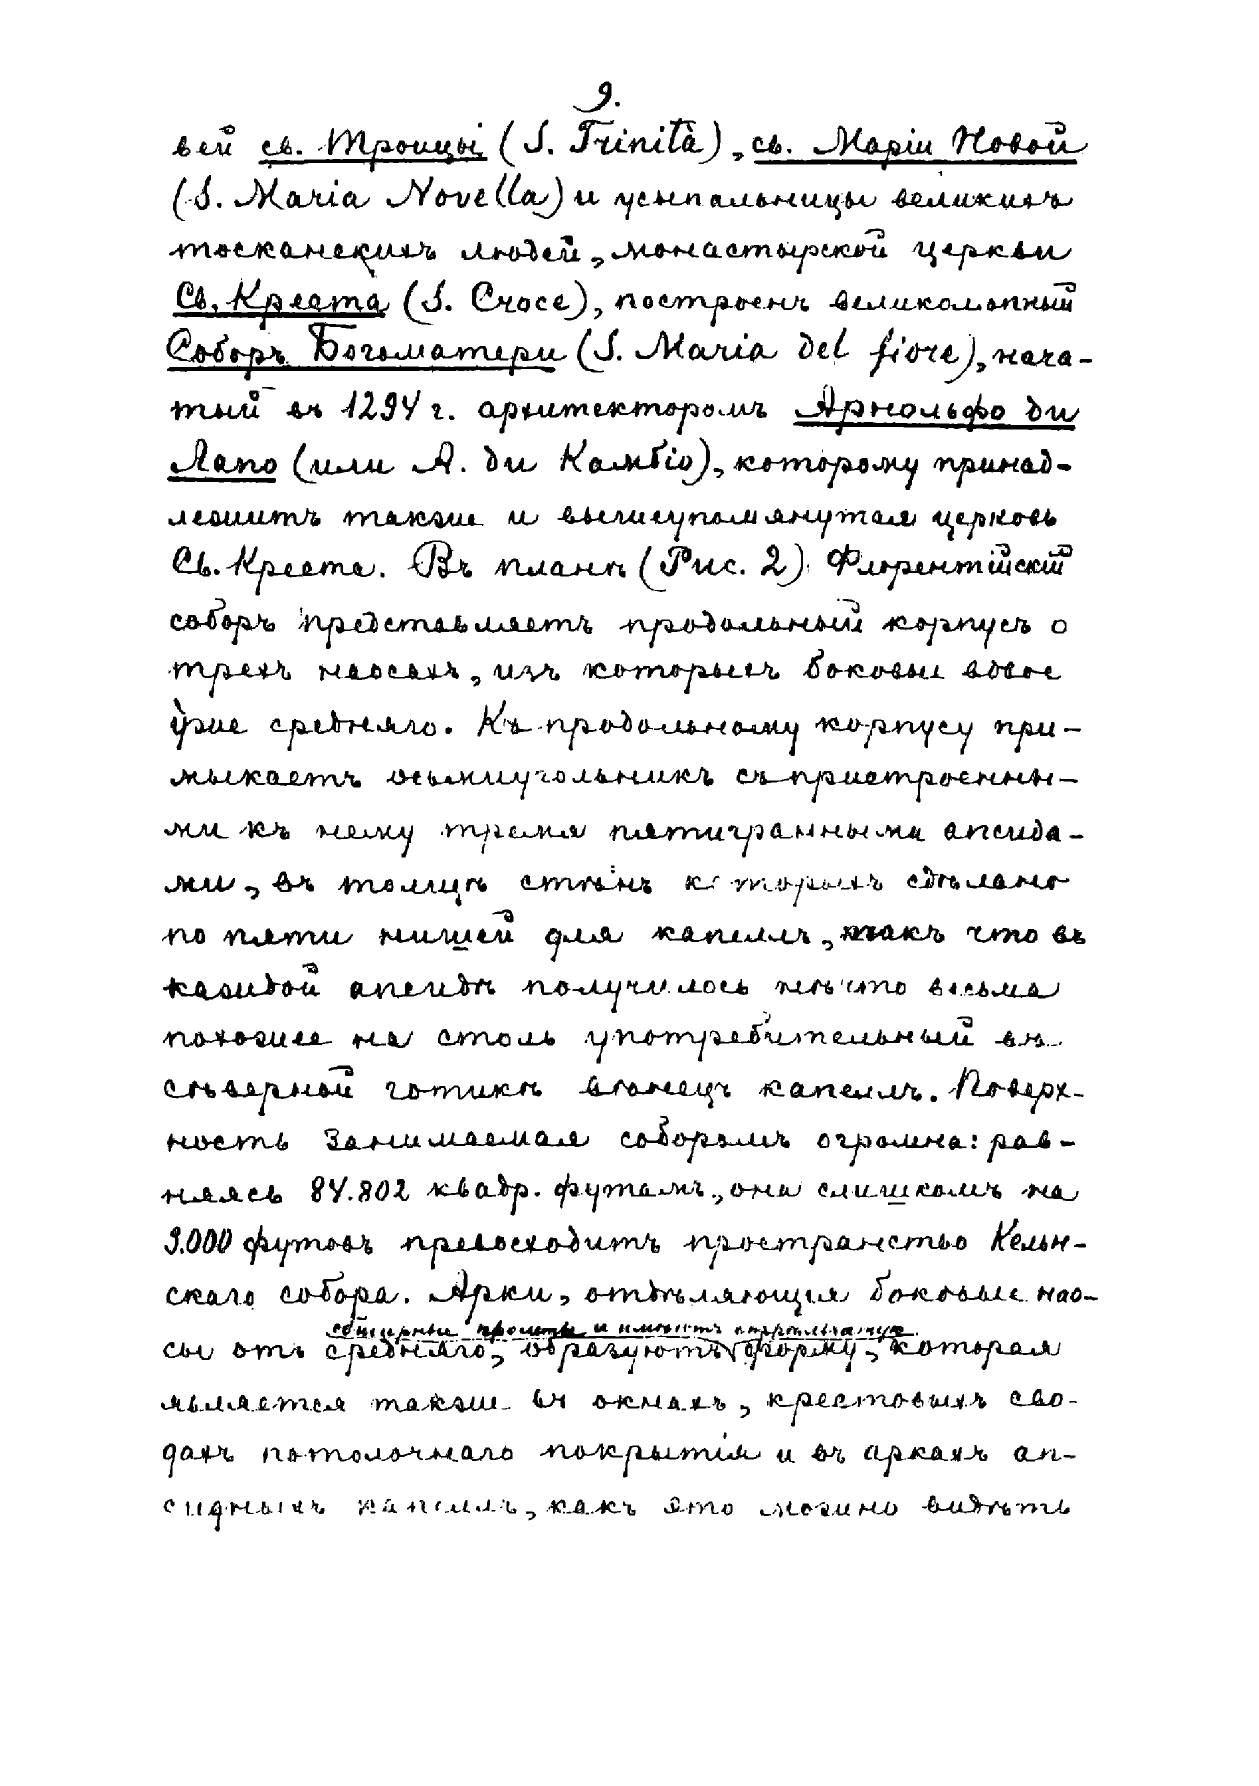 9.
вей св. Троицы (S. Trinità), св. Маріи Новой
(S. Maria Novella) и усыпальницы великихъ
тосканскихъ людей, монастырской церкви
Св. Креста (S. Croce), построенъ великолѣпный
Соборъ Богоматери (S. Maria del fiore), нача-
тый въ 1294 г. архитекторомъ Арнольфо ди
Лапо (или А. ди Камбіо), которому принад-
лежитъ также и вышеупомянутая церковь
Св. Креста. Въ планѣ (Рис. 2) Флорентійскій
соборъ представляетъ продольный корпусъ о
трехъ наосахъ, изъ которыхъ боковые вдвое
ýже средняго. Къ продольному корпусу при-
мыкаетъ осьмиугольникъ съ пристроенны-
ми къ нему тремя пятигранными апсида-
ми, въ толщѣ стѣнъ которыхъ сдѣлано
по пяти нишей для капеллъ, такъ что въ
каждой апсидѣ получилось нѣчто весьма
похожее на столь употребительный въ
сѣверной готикѣ вѣнецъ капеллъ. Поверх-
ность занимаемая соборомъ огромна: рав-
няясь 84.802 квадр. футамъ, она слишкомъ на
3.000 футовъ превосходитъ пространство Кельн-
скаго собора. Арки, отдѣляющія боковые нао-
обширные пролеты и имѣютъ стрѣльчатую
сы отъ средняго, образуютъ форму, которая
является также въ окнахъ, крестовыхъ сво-
дахъ потолочнаго покрытія и въ аркахъ ап-
сидныхъ капеллъ, какъ это можно видѣть